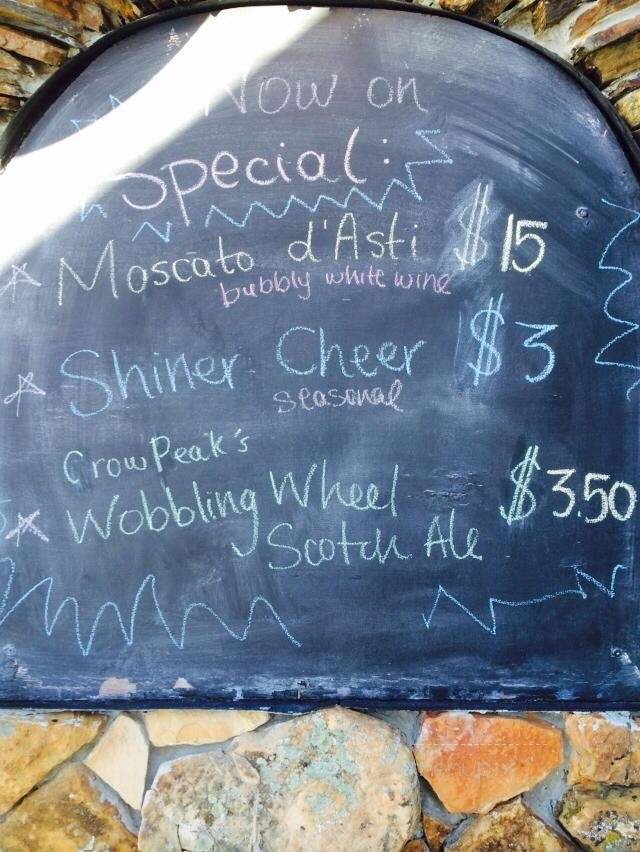 Now on
Special:
Moscato d'Asti $15
bubbly white wine
Shiner Cheer $3
seasonal
Crow Peak's
Wobbling Wheel $3.50
Scotch Ale